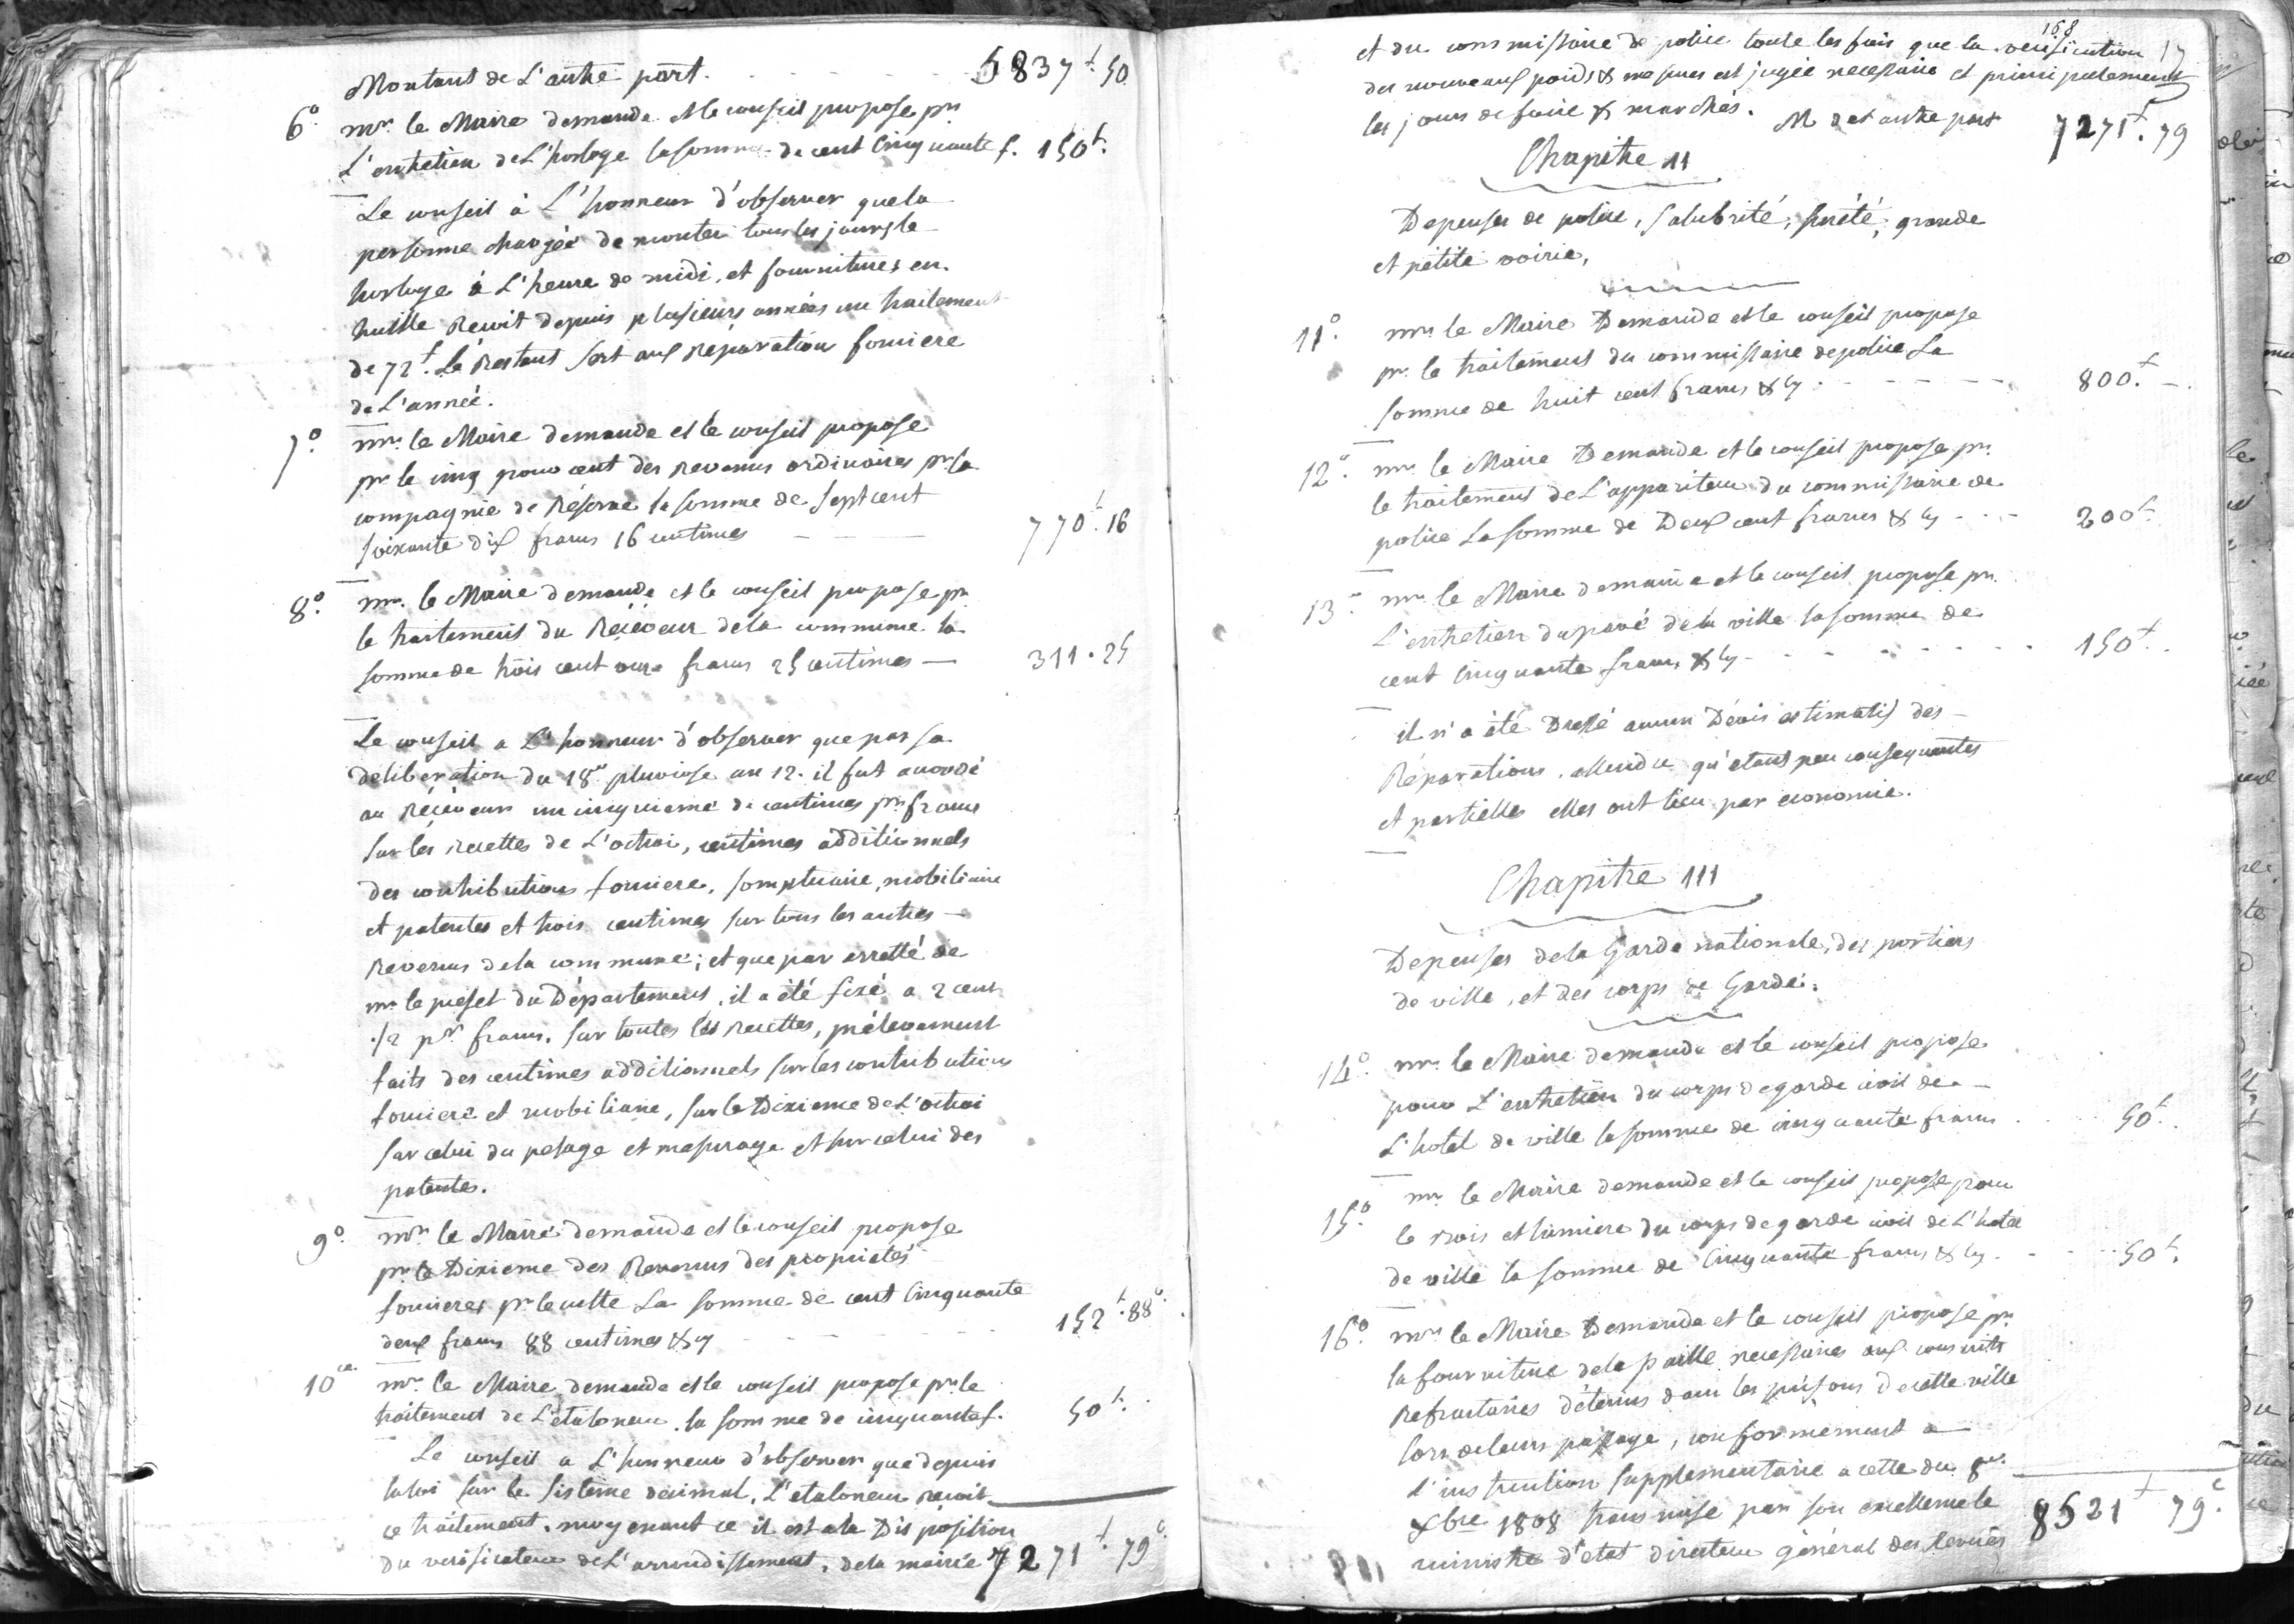 Montant de L'autre part. - - - - 5837 t 50
6° mr. le Maire demande et le conseil propose pr.
L'entretien de L'horloge la somme de cent Cinquante f. 150 t.
Le conseil à L'honneur d'observer que la
personne chargée de monter tous les jours le
horloge à L'heure de midi, et fournitures en
huille Recoit depuis plusieurs années un traitement
de 72 t. Le Restant sert aux Réparations fonciere
de L'année.
7° mr. le Maire demande et le conseil propose
pr. le cinq pour cent des Revenus ordinaires pr. la
compagnie de Réserve la somme de Sept cent
soixante dix francs 16 centimes - - - 770 t. 16
8° mr. le Maire demande et le conseil propose pr.
le traitement du Réceveur de la commune la
somme de trois cent onze francs 25 centimes — 311. 25
Le conseil a L'honneur d'observer que par sa
deliberation du 18e pluviose an 12. il fut accordé
au Réceveur un cinquieme de centimes pr. franc
sur les recettes de L'octroi, centimes additionnels
des contributions fonciere, somptuaire, mobiliaire
et patentes et trois centimes sur tous les autres —
Revenus de la commune; et que par arretté de
mr. le prefet du Département, il a été fixé a 2 cent
1/2 pr. franc. sur toutes les recettes, prélevement
faits des centimes additionnels sur les contributions
fonciere et mobiliaire, sur le Dixieme de L'octroi
sur celui du pesage et mesurage et sur celui des
patentes.
9° mr. le Maire demande et le conseil propose
pr. le Dixieme des Revenus des propriétés
foncieres pr. le culte La somme de cent Cinquante
deux francs 88 centimes & cy - - - 152 t. 88 c.
10° mr. le Maire demande et le conseil propose pr. le
traitement de L'étaloneur. la somme de cinquante f. 50 t.
Le conseil a L'honneur d'observer que depuis
la loi sur le sisteme decimal, L'etaloneur recoit
ce traitement. moyenant ce il est a la Disposition
du verificateur de L'arrondissement, de la mairie 7271 t. 79 c.
168
et du commissaire de police toute les fois que la verification 17
des nouveaux poids & mesures est jugée necessaire et principalement
les jours de foire & marchés. M de et autre part 7271 t. 79
Chapitre 11
Depenses de police, salubrité, sureté, grande
et petite voirie,
11° mr. le Maire Demande et le conseil propose
pr. le traitement du commissaire de police La
somme de huit cent francs & cy - - - - 800. t —
12° mr. le Maire Demande et le conseil propose pr.
le traitement de L'appariteur du commissaire de
police La somme de Deux cent francs & cy - - - 200 t.
13° mr. le Maire demande et le conseil propose pr.
L'entretien du pavé de la ville la somme de
cent Cinquante francs & cy - - - - 150 t.
il n'a été Dressé aucun Dévis estimatif des —
Réparations. attendu qu'étant peu consequantes
et partielles elles ont lieu par economie.
Chapitre 111
Depenses de la Garde nationale, des portiers
de ville, et des corps de Garde.
14° mr. le Maire demande et le conseil propose
pour L'entretien du corps de garde civil de —
L'hotel de ville la somme de cinquante francs 50 t.
15° mr. le Maire demande et le conseil propose pour
le bois et lumiere du corps de garde civil de L'hotel
de ville la somme de Cinquante francs & cy - - - 50 t.
16° mr. le Maire Demande et le conseil propose pr.
la fourniture de la paille necessaires aux conscrits
Refractaires détenus dans les prisons de cette ville
lors de leurs passage, conformement a —
L'instruction supplementaire a cette du 8e
xbre 1808 transmise par son excellence le
ministre d'etat directeur général des revues 8521 t 79 c.